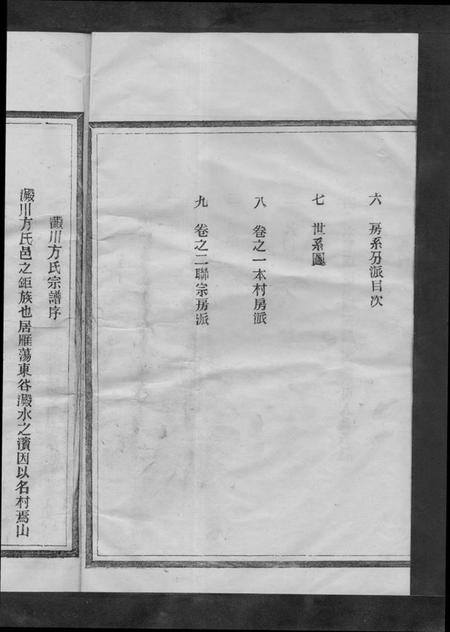 六 房系分派目次
七 世系圖
八 卷之一本村房派
九 卷之二聯宗房派
澱川方氏宗譜序
澱川方氏邑之鉅族也居雁蕩東谷澱水之濱因以名村焉山